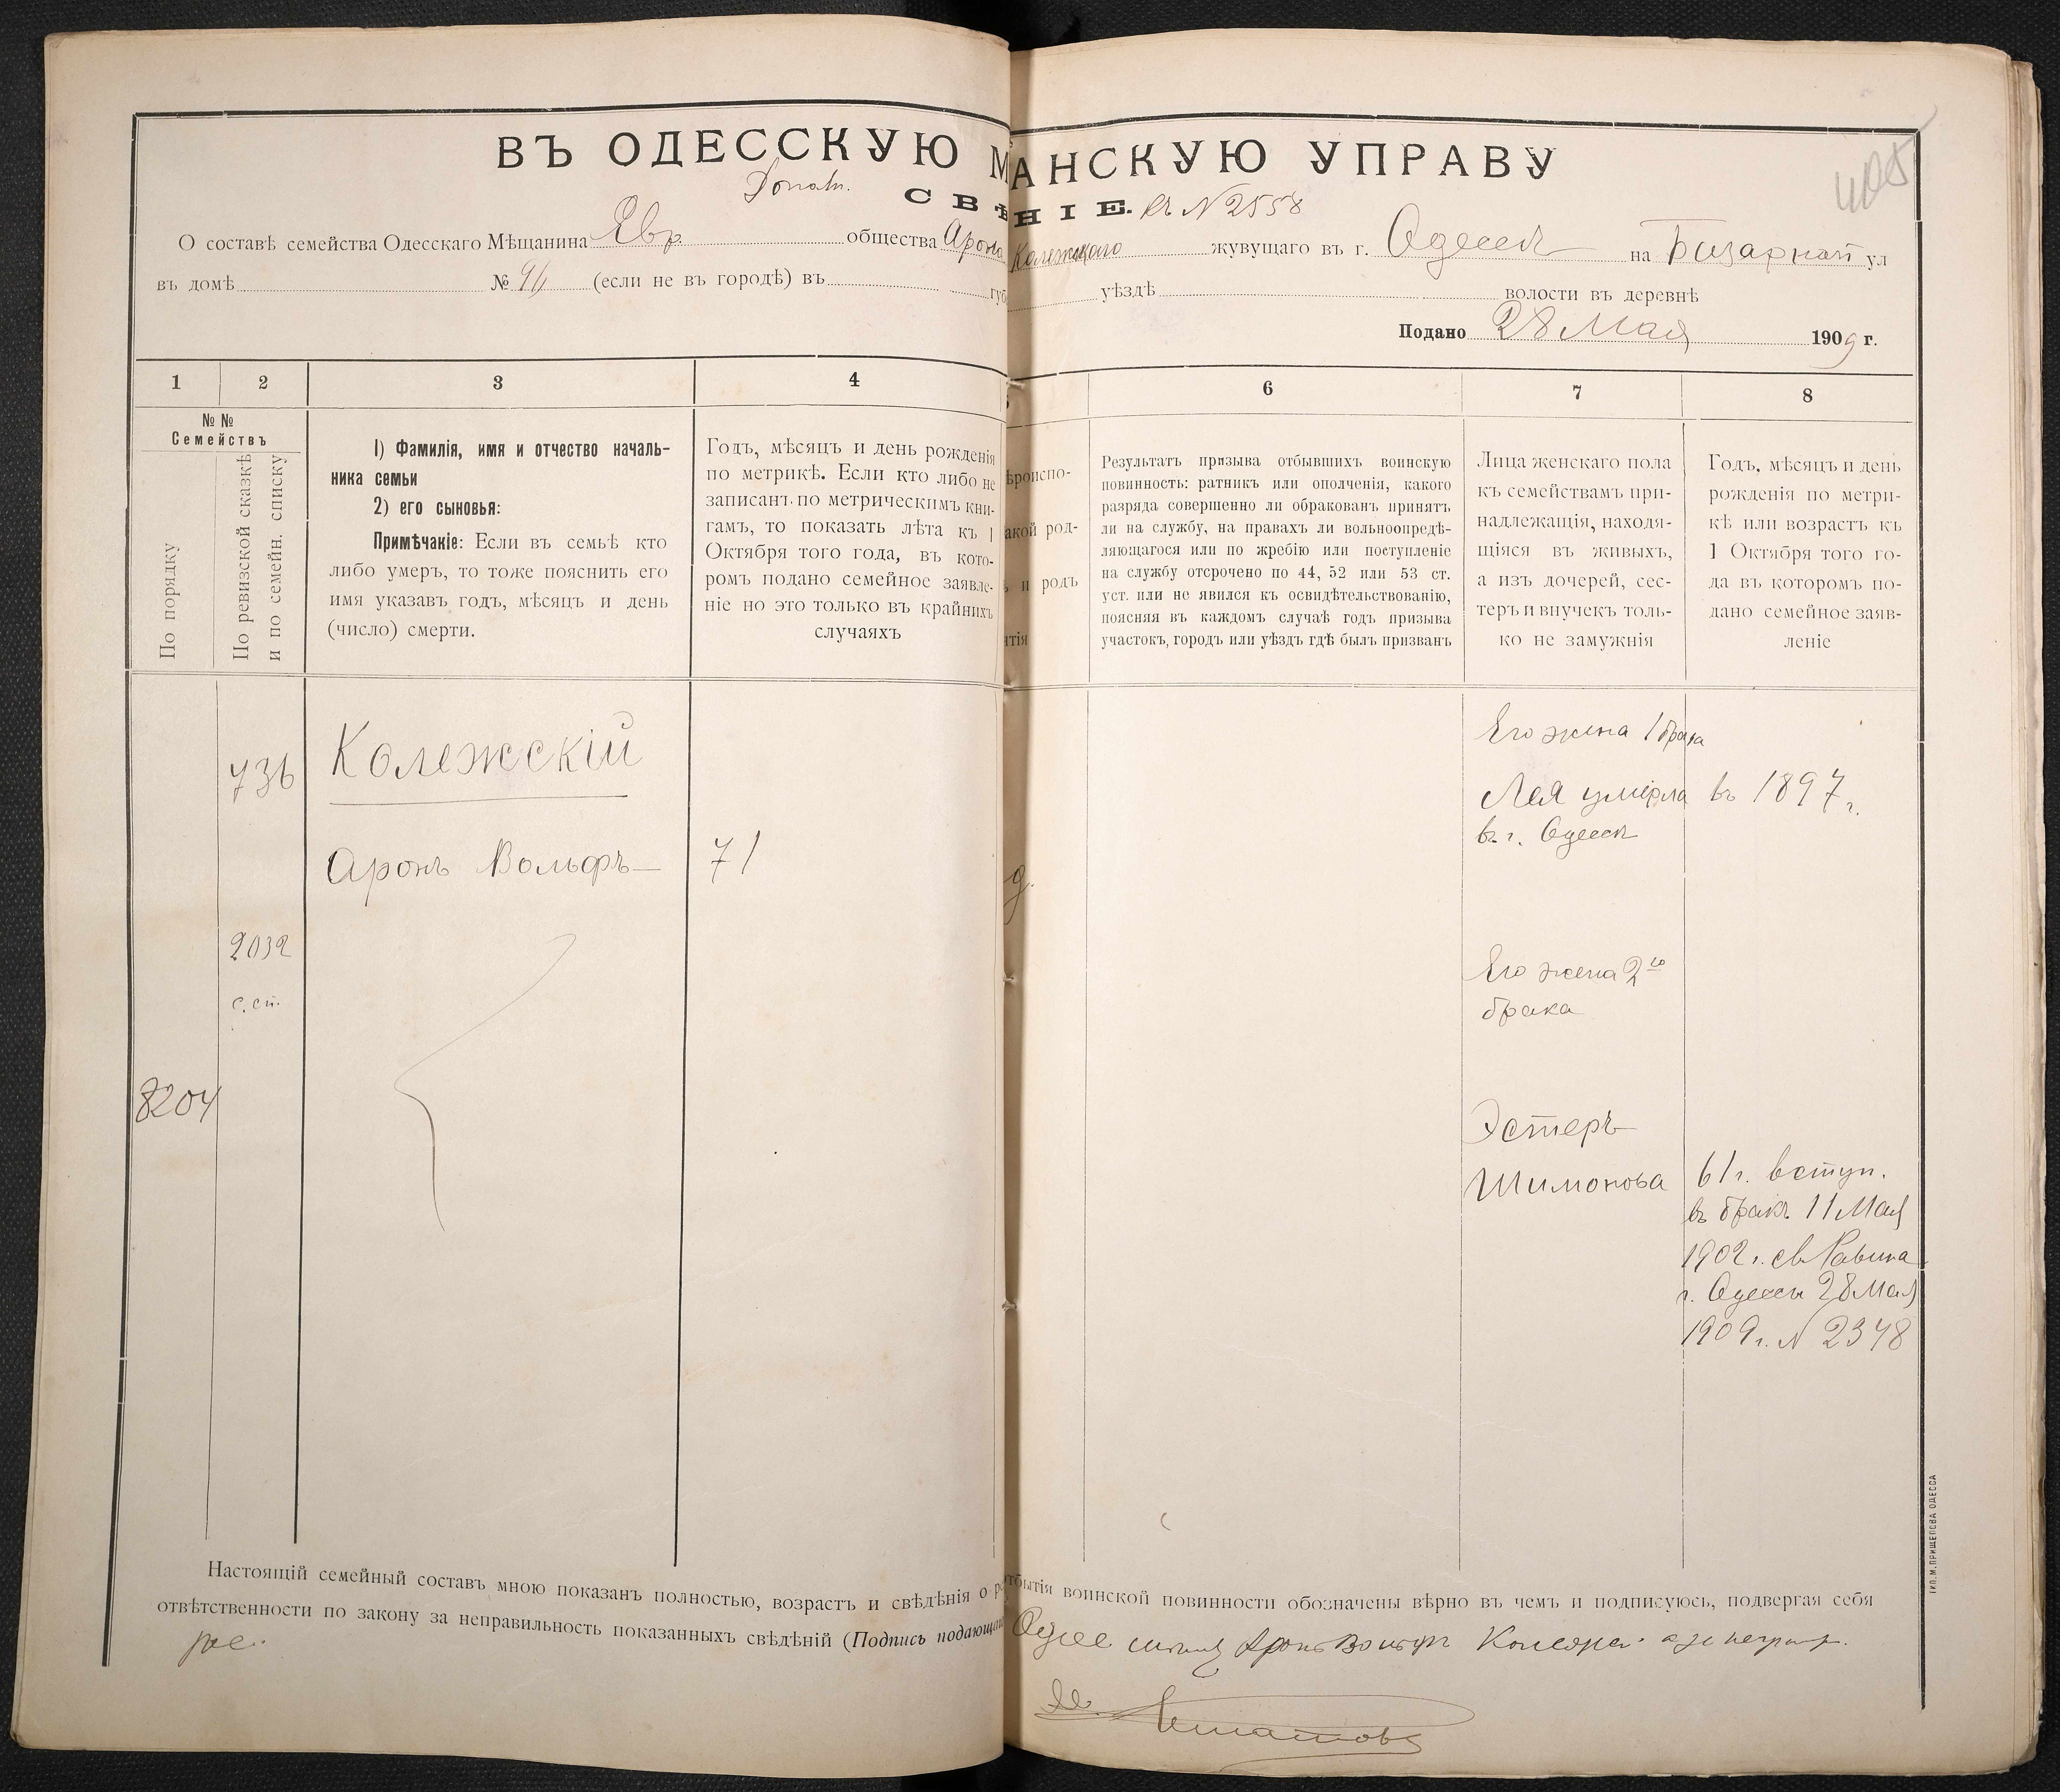 ВЪ ОДЕССКУЮ М АНСКУЮ УПРАВУ
СВѢ НІЕ. къ № 2558
О составѣ семейства Одесскаго Мѣщанина Евр. общества Арона Колежскаго жувущаго въ г. Одессѣ на Базарной ул
въ домѣ № (если не въ городѣ) въ губ уѣздѣ волости въ деревнѣ
Подано 28 Мая 1909 г.
1 2 3 4 6 7 8
№ №
Семействъ
По порядку
По ревизской сказкѣ
и по семейн. списку
1) Фамилія, имя и отчество началь-
ника семьи
2) его сыновья:
Примѣчакіе: Если въ семьѣ кто
либо умеръ, то тоже пояснить его
имя указавъ годъ, мѣсяцъ и день
(число) смерти.
Годъ, мѣсяцъ и день рожденія
по метрикѣ. Если кто либо не
записанъ по метрическимъ кни-
гамъ, то показать лѣта къ 1
Октября того года, въ кото-
ромъ подано семейное заявле-
ніе но это только въ крайнихъ
случаяхъ
ѣроиспо-
акой род-
и родъ
тія
Результатъ призыва отбывшихъ воинскую
повинность: ратникъ или ополченія, какого
разряда совершенно ли обракованъ принятъ
ли на службу, на правахъ ли вольноопредѣ-
ляющагося или по жребію или поступленіе
на службу отсрочено по 44, 52 или 53 ст.
уст. или не явился къ освидѣтельствованію,
поясняя въ каждомъ случаѣ годъ призыва
участокъ, городъ или уѣздъ гдѣ былъ призванъ
Лица женскаго пола
къ семействамъ при-
надлежащія, находя-
щіяся въ живыхъ,
а изъ дочерей, сес-
теръ и внучекъ толь-
ко не замужнія
Годъ, мѣсяцъ и день
рожденія по метри-
кѣ или возрастъ къ
1 Октября того го-
да въ которомъ по-
дано семейное заяв-
леніе
736 Колежскій
Его жена 1 брака
Лея умерла въ 1897 г.
въ г. Одессѣ
Аронъ Вольфъ— 71
2032
с. сп.
Его жена 2го
брака
8204
Эстеръ
Шимонова 61 г. вступ.
въ бракъ 11 Мая
1902 г. св Равина
г. Одессы 28 Мая
1909 г. № 2348
Настоящій семейный составъ мною показанъ полностью, возрастъ и свѣдѣнія о р тбытія воинской повинности обозначены вѣрно въ чемъ и подписуюсь, подвергая себя
отвѣтственности по закону за неправильность показанныхъ свѣдѣній (Подпись подающа Аронъ Вольфъ
ТИП. М. ПРИЩЕПОВА ОДЕССА